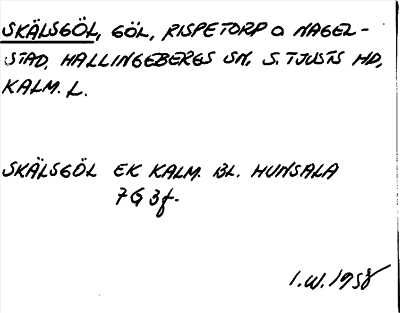 SKÄLSGÖL, GÖL, RISPETORP O NAGEL-
STAD, HALLINGEBERGS SN, S. TJUSTS HD,
KALM. L.
SKÄLSGÖL EK KALM. BL. HUNSALA
7G 3f.
I.W. 1958